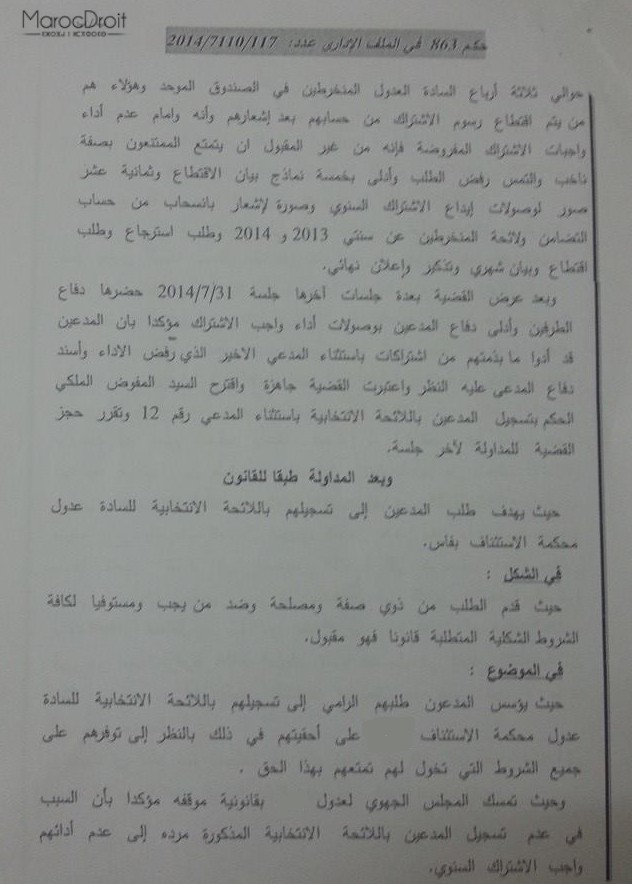 MarocDroit
حكم 863 في الملف الإداري عدد: 2014/7110/117
حوالي ثلاثة أرباع السادة العدول المنخرطين في الصندوق الموحد وهؤلاء هم
من يتم اقتطاع رسوم الاشتراك من حسابهم بعد إشعارهم وأنه وامام عدم أداء
واجبات الاشتراك المفروضة فإنه من غير المقبول ان يتمتع الممتنعون بصفة
ناخب والتمس رفض الطلب وأدلى بخمسة نماذج بيان الاقتطاع وثمانية عشر
صور لوصولات إيداع الاشتراك السنوي وصورة لإشعار بانسحاب من حساب
التضامن ولائحة المنخرطين عن سنتي 2013 و 2014 وطلب استرجاع وطلب
اقتطاع وبيان شهري وتذكير وإعلان نهائي.
وبعد عرض القضية بعدة جلسات آخرها جلسة 2014/7/31 حضرها دفاع
الطرفين وأدلى دفاع المدعين بوصولات أداء واجب الاشتراك مؤكدا بان المدعين
قد أدوا ما بذمتهم من اشتراكات باستثناء المدعي الاخير الذي رفض الاداء وأسند
دفاع المدعى عليه النظر واعتبرت القضية جاهزة واقترح السيد المفوض الملكي
الحكم بتسجيل المدعين باللائحة الانتخابية باستثناء المدعي رقم 12 وتقرر حجز
القضية للمداولة لآخر جلسة.
وبعد المداولة طبقا للقانون
حيث يهدف طلب المدعين إلى تسجيلهم باللائحة الانتخابية للسادة عدول
محكمة الاستئناف بفاس.
في الشكل :
حيث قدم الطلب من ذوي صفة ومصلحة وضد من يجب ومستوفيا لكافة
الشروط الشكلية المتطلبة قانونا فهو مقبول.
في الموضوع :
حيث يؤسس المدعون طلبهم الرامي إلى تسجيلهم باللائحة الانتخابية للسادة
عدول محكمة الاستئناف على أحقيتهم في ذلك بالنظر إلى توفرهم على
جميع الشروط التي تخول لهم تمتعهم بهذا الحق .
وحيث تمسك المجلس الجهوي لعدول بقانونية موقفه مؤكدا بأن السبب
في عدم تسجيل المدعين باللائحة الانتخابية المذكورة مرده إلى عدم أدائهم
واجب الاشتراك السنوي.